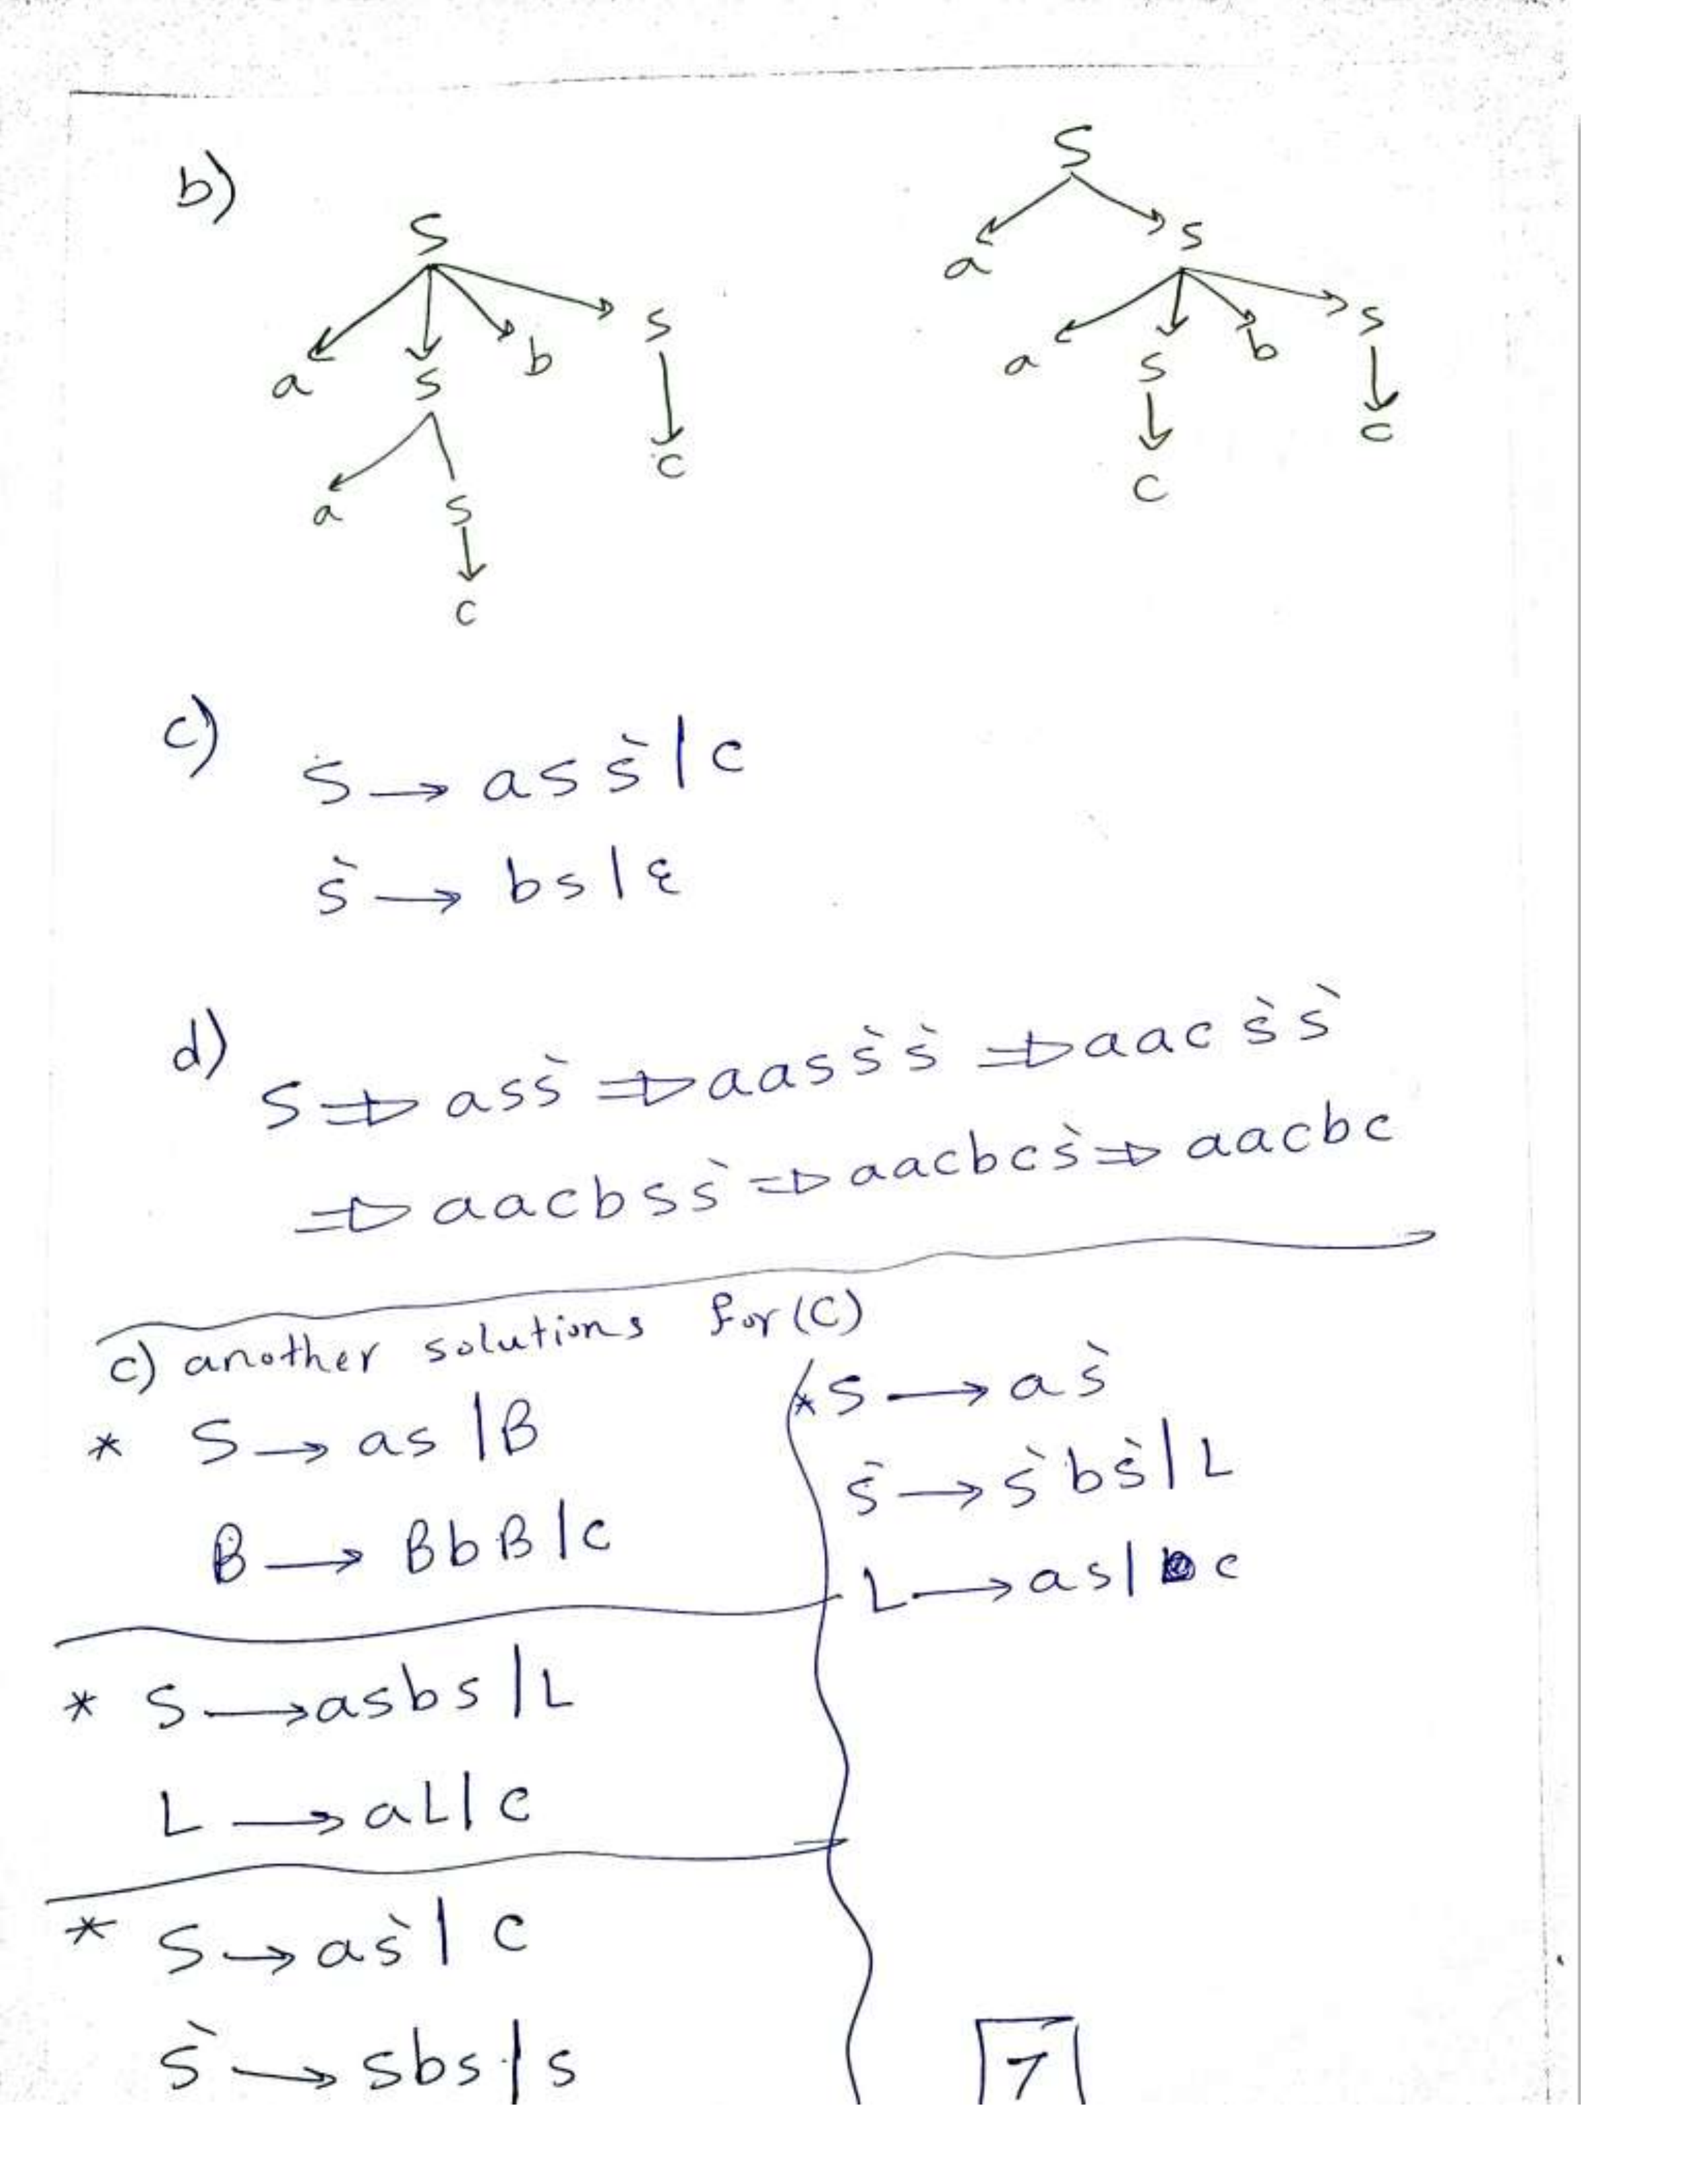 b)
S
a s b s
a s c
c
S
a s
a s b s
c c
c)
S → a s s̀ | c
s̀ → b s | ε
d)
S ⇒ a s s̀ ⇒ a a s s̀ s̀ ⇒ a a c s̀ s̀
⇒ a a c b s s̀ ⇒ a a c b c s̀ ⇒ a a c b c
c) another solutions for (C)
* S → a s | B
B → B b B | c
* S → a s b s | L
L → a L | c
* S → a s̀ | c
s̀ → s b s | s
* S → a s̀
s̀ → s̀ b s̀ | L
L → a s | c
7